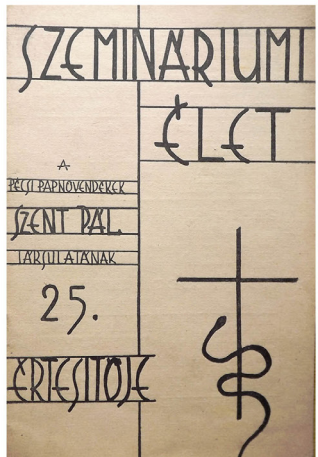 SZEMINÁRIUMI
ÉLET
A
PÉCSI PAPNÖVENDÉKEK
SZENT PÁL
TÁRSULATÁNAK
25.
ÉRTESITŐJE